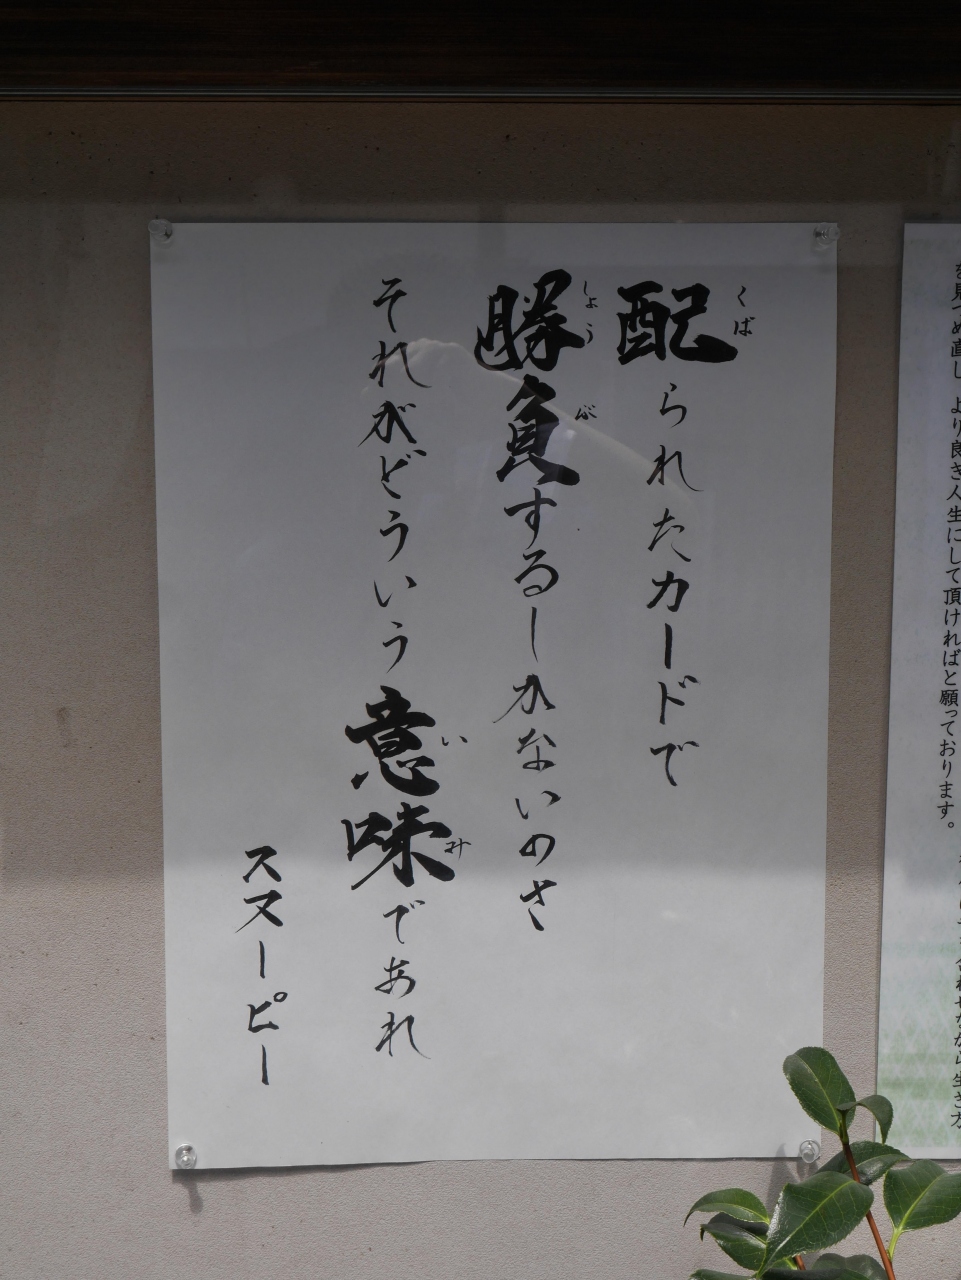 配られたカードで
勝負するしかないのさ
それがどういう意味であれ
スヌーピー
くば
しょうぶ
いみ
を見つめ直し、より良き人生にして頂ければと願っております。